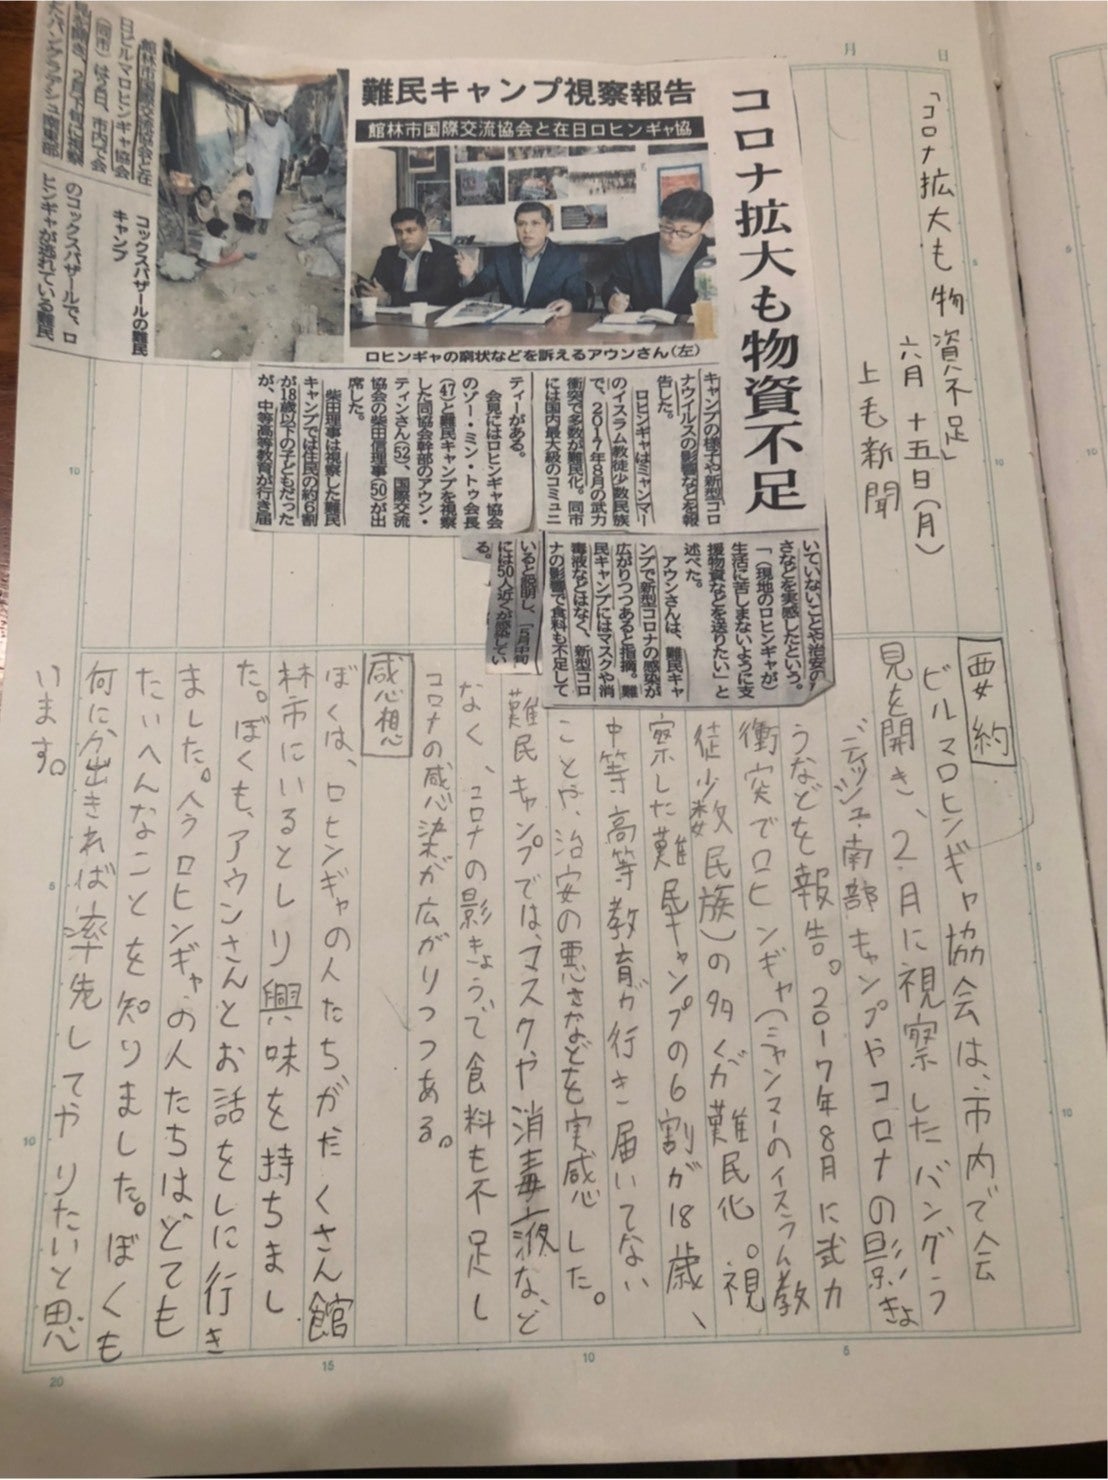 月　日
「コロナ拡大も物資不足」
六月十五日(月)
上毛新聞
コロナ拡大も物資不足
難民キャンプ視察報告
館林市国際交流協会と在日ロヒンギャ協
ロヒンギャの窮状などを訴えるアウンさん(左)
コックスバザールの難民
キャンプ
館林市国際交流協会と在
日ビルマロヒンギャ協会
(同市)は2日、市内で会
見を開き、2月下旬に視察
したバングラデシュ南東部
のコックスバザールで、ロ
ヒンギャが逃れている難民
キャンプの様子や新型コロ
ナウイルスの影響などを報
告した。
ロヒンギャはミャンマー
のイスラム教徒少数民族
で、2017年8月の武力
衝突で多数が難民化。同市
には国内最大級のコミュニ
ティーがある。
会見にはロヒンギャ協会
のゾー・ミン・トゥ会長
(47)と難民キャンプを視察
した同協会幹部のアウン・
ティンさん(52)、国際交流
協会の柴田原理事(50)が出
席した。
柴田理事は視察した難民
キャンプでは住民の約6割
が18歳以下の子どもだった
が、中等高等教育が行き届
いていないことや治安の
さなどを実感したという。
「(現地のロヒンギャが)
生活に苦しまないように支
援物資などを送りたい」と
述べた。
アウンさんは、難民キャ
ンプで新型コロナの感染が
広がりつつあると指摘。難
民キャンプにはマスクや消
毒液などはなく、新型コロ
ナの影響で食料も不足して
いると説明し、「5月中旬
には50人近くが感染してい
る。
要約
ビルマロヒンギャ協会は、市内で会
見を開き、2月に視察したバングラ
ディッシュ南部キャンプやコロナの影きょ
うなどを報告。2017年8月に武力
衝突でロヒンギャ(ミャンマーのイスラム教
徒少数民族)の多くが難民化。視
察した難民キャンプの6割が18歳、
中等高等教育が行き届いてない
ことや、治安の悪さなどを実感した。
難民キャンプでは、マスクや消毒液など
なく、コロナの影きょうで食料も不足し
コロナの感染が広がりつつある。
感想
ぼくは、ロヒンギャの人たちがたくさん館
林市にいるとしり興味を持ちまし
た。ぼくも、アウンさんとお話をしに行き
ました。今ロヒンギャの人たちはとても
たいへんなことを知りました。ぼくも
何に出きれば率先してやりたいと思
います。
5
10
5
10
5
10
15
20